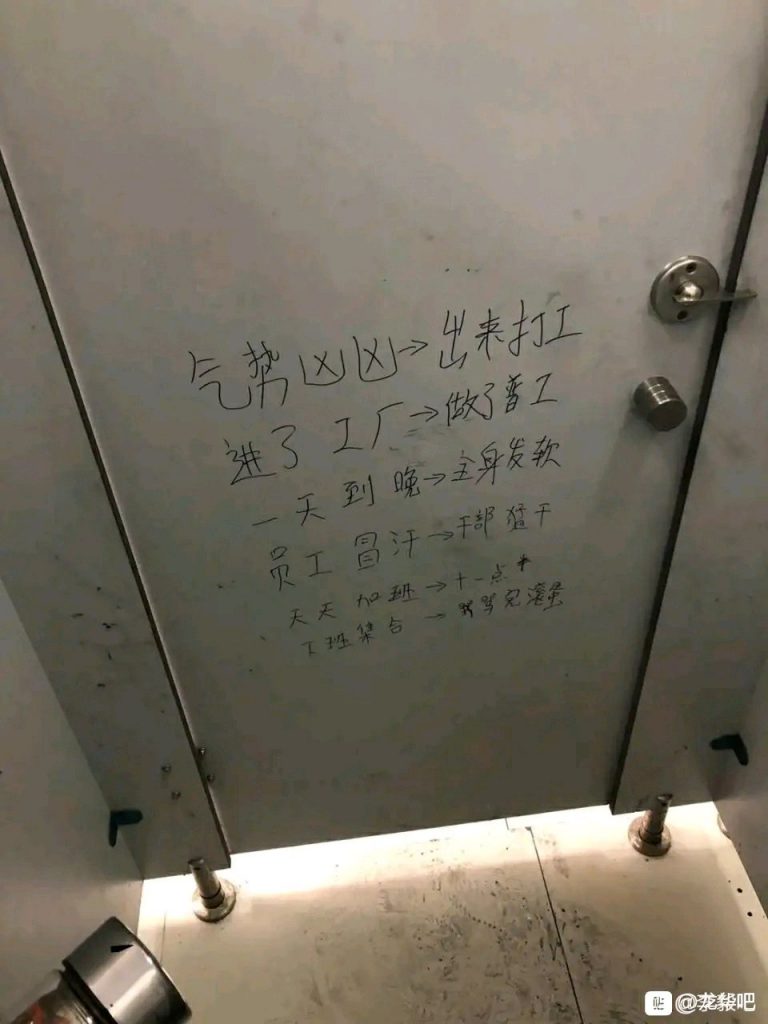 气势凶凶→出来打工
进了工厂→做了普工
一天到晚→全身发软
员工冒汗→干部猛干
天天加班→十一点*
下班集合→骂完滚蛋
贴 @龙袋吧